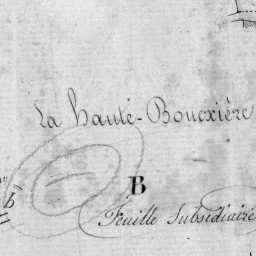 La Haute-Boucxière
B
Feuille Subsidiaire